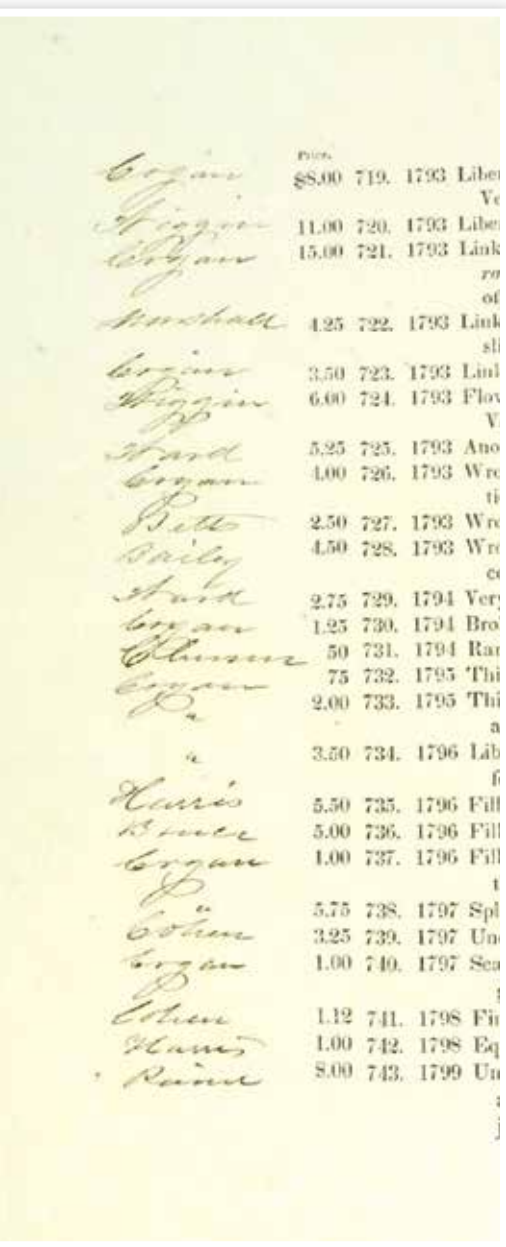 Price.
Cogan $8.00 719. 1793 Liber
Ve
Higgin 11.00 720. 1793 Liber
Cogan 15.00 721. 1793 Link
ro
of
Marshall 4.25 722. 1793 Link
sli
Cogan 3.50 723. 1793 Link
Higgin 6.00 724. 1793 Flow
V
Ward 5.25 725. 1793 Ano
Cogan 4.00 726. 1793 Wro
ti
Betts 2.50 727. 1793 Wro
Bailey 4.50 728. 1793 Wro
co
Ward 2.75 729. 1794 Very
Cogan 1.25 730. 1794 Bro
50 731. 1794 Rar
Cogan 75 732. 1795 Thi
" 2.00 733. 1795 Thi
a
" 3.50 734. 1796 Lib
f
Harris 5.50 735. 1796 Fill
5.00 736. 1796 Fill
Cogan 1.00 737. 1796 Fill
t
" 5.75 738. 1797 Spl
Cohen 3.25 739. 1797 Unc
Cogan 1.00 740. 1797 Sca
Cohen 1.12 741. 1798 Fin
Harris 1.00 742. 1798 Eq
8.00 743. 1799 Un
a
j